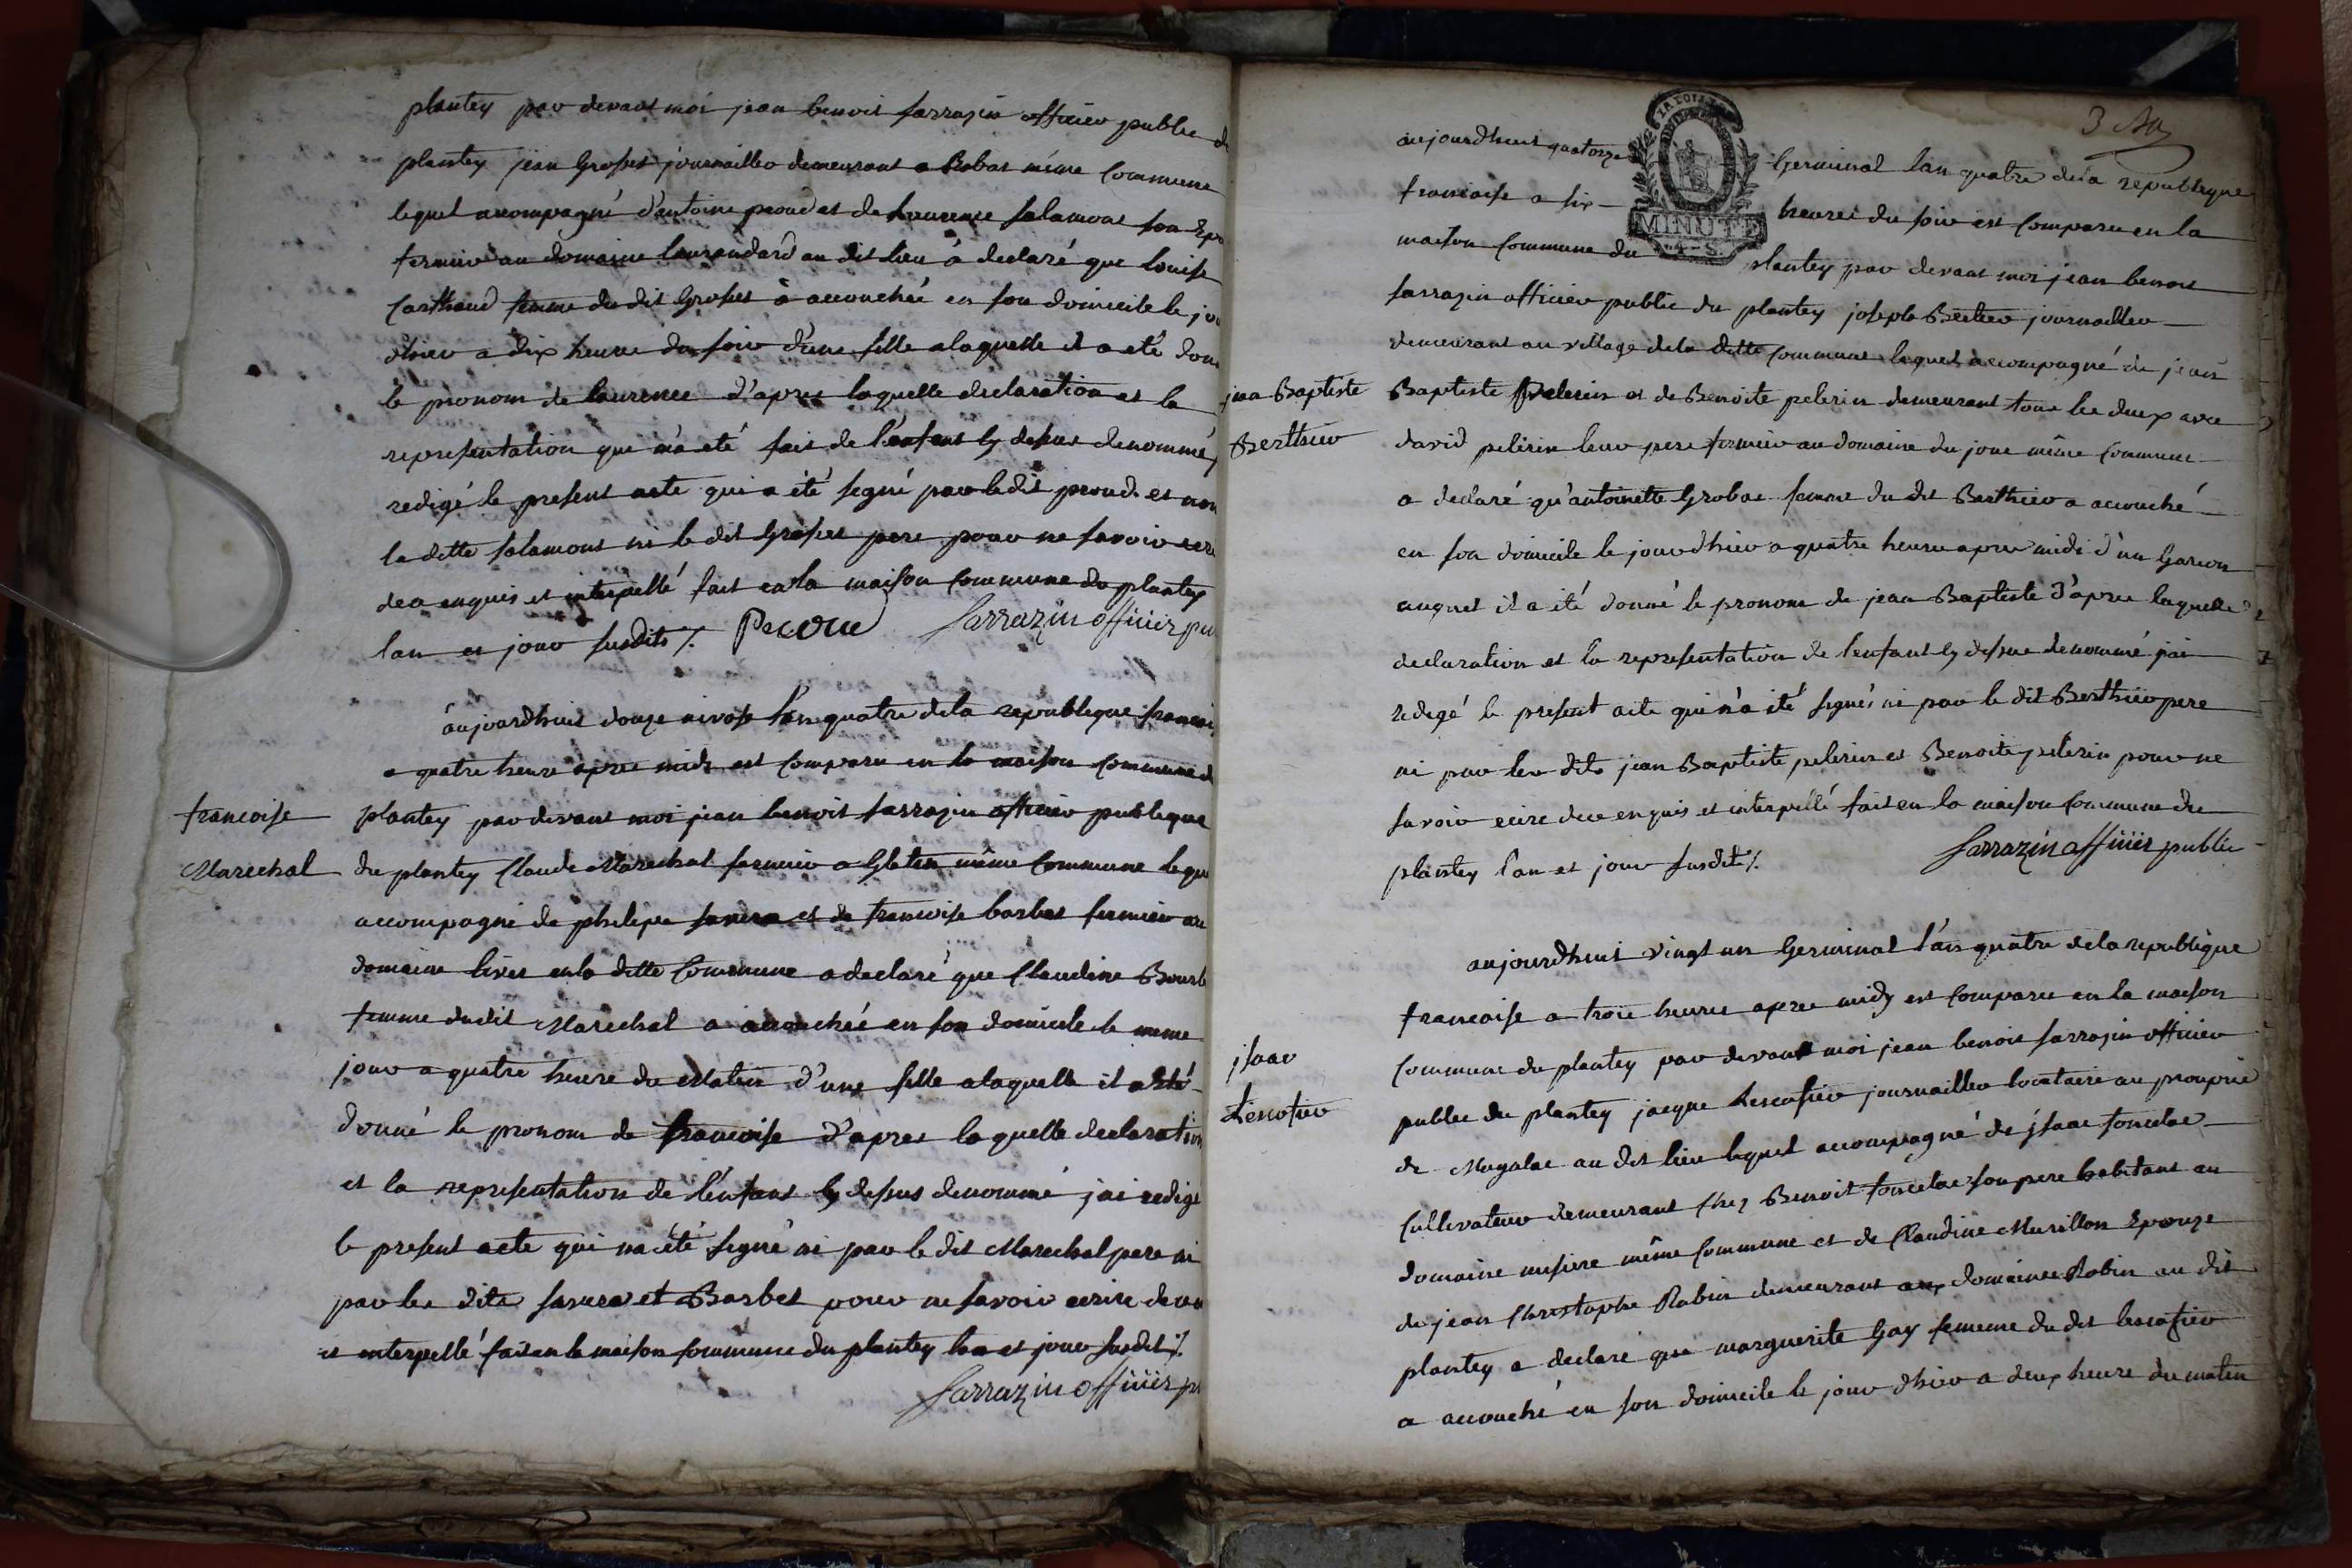 plantey par devant moi jean benoit sarrazin officier public d
plantey jean Grosset journallier demeurant a Robat même Commune
lequel accompagné d'antoine et de Laurence salamont son Epo
fermier au domaine au dit lieu à declaré que Louise
femme du dit Grosset à accouchée en son domicile le jou
dhier a dix heure du soir d'une fille a laquelle il a eté don
le pronom de laurence d'apres laquelle declaration et la
representation que m'a eté fait de l'enfant cy dessus denommé j
redigé le present acte qui a été segné par le dit et non
la ditte salamont ni le dit Grosset pere pour ne savoir ecri
de ce enquis et interpellé fait en la maison Commune du plantey
lan et jour susdits ⁒ Pecoud Sarrazin officier pu
aujourdhuit douze nivose l'an quatre de la republique francai
a quatre heure apres midi est Comparu en la maison Commune d
francoise plantey par devant moi jean benoit sarrazin officier publique
Marechal du plantey Claude Marechal fermier a même Commune leque
accompagné de philipe et de francoise barbet fermier au
domaine en la ditte Commune a declaré que Claudine
femme dudit Marechal a accouchée en son domicile le meme
jour a quatre heure du Matin d'une fille a laquelle il a eté
donné le pronom de francoise d'apres laquelle declaration
et la representation de l'enfant cy dessus denommé jai redigé
le present acte qui na été segné ni par le dit Marechal pere ni
par les dits et Barbet pour ne savoir ecrire de ce
et interpellé fait en la maison Commune du plantey lan et jour susdit ⁒
Sarrazin officier pu
3
aujourdhuit quatorze Germinal lan quatre de la republique
francaise a six heures du soir est Comparu en la
MINUTE
maison Commune du plantey par devant moi jean benoit
sarrazin officier public du plantey joseph Bertier journallier
demeurant au village de la ditte Commune lequel accompagné de jean
jean Baptiste Baptiste pelerin et de Benoite pelerin demeurant tous les deux avec
Berthier david pelerin leur pere fermier au domaine du jonc même Commune
a declaré qu'antoinette Grobas femme du dit Berthier a accouché
en son domicile le jour dhier a quatre heure apres midi d'un Garcon
auquel il a été donné le pronom de jean Baptiste d'apres laquelle
declaration et la representation de l'enfant cy dessus denommé jai
redegé le present acte qui n'a été segnés ni par le dit Berthier pere
ni par les dits jean Baptiste pelerin et Benoite pelerin pour ne
savoir ecire de ce enquis et interpellé fait en la maison Commune du
plantey l'an et jour susdit ⁒ Sarrazin officier public
aujourdhuit vingt un Germinal l'an quatre de la republique
francaise a trois heures apres midy est Comparu en la maison
jsaac Commune du plantey par devant moi jean benoit sarrazin officier
Lescofier public du plantey jacque Lescofier journallier locataire au
de au dit lieu lequel accompagné de jsaac
Cultivateur demeurant Chez Benoit son pere habitant au
domaine même Commune et de Claudine Murillon Epouze
de jean Christophe Robin demeurant aux domaine Robin au dit
plantey a declaré que marguerite Gay femme du dit lescofier
a accouché en son domicile le jour dhier a deux heure du matin